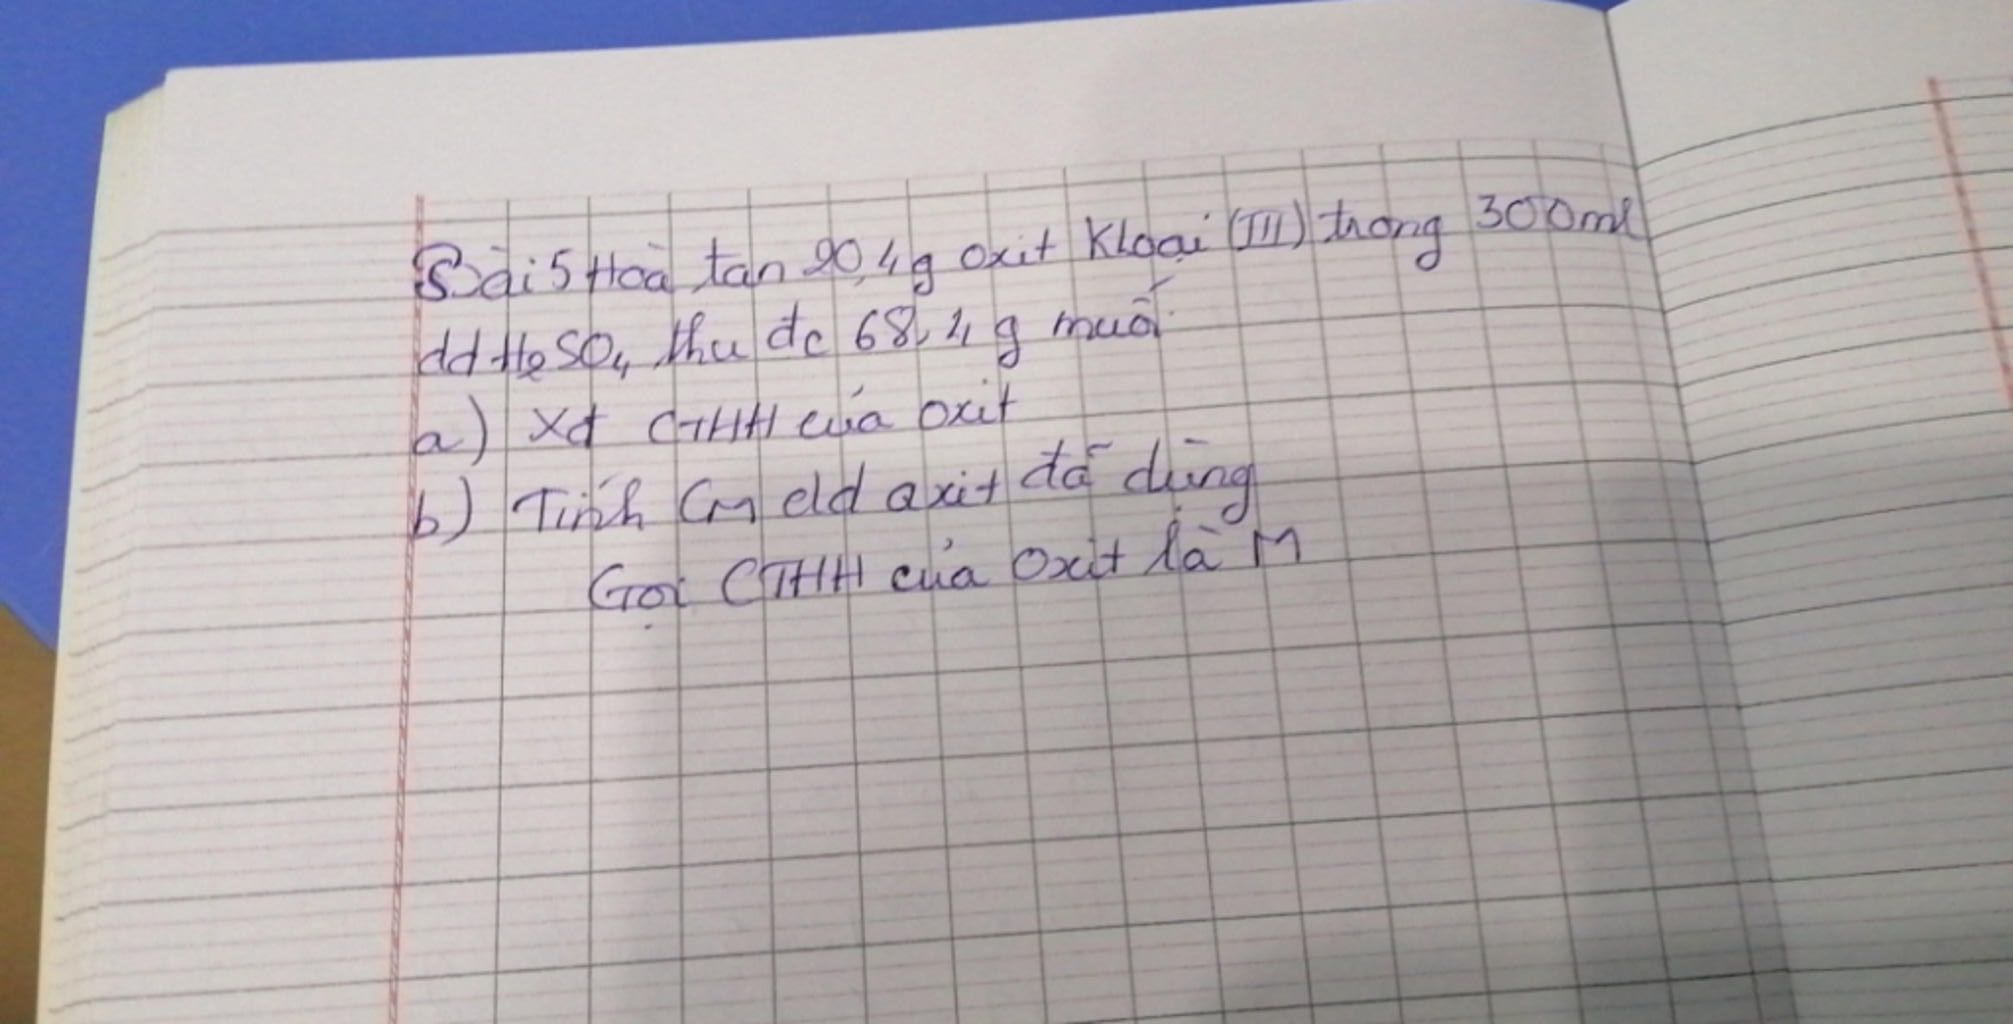 Bài 5 Hoà tan 20,4g oxit Kloại (III) trong 300ml
dd H2SO4 thu đc 68,4 g muối
a) Xđ CTHH của oxit
b) Tính CM dd axit đã dùng
Gọi CTHH của Oxit là M